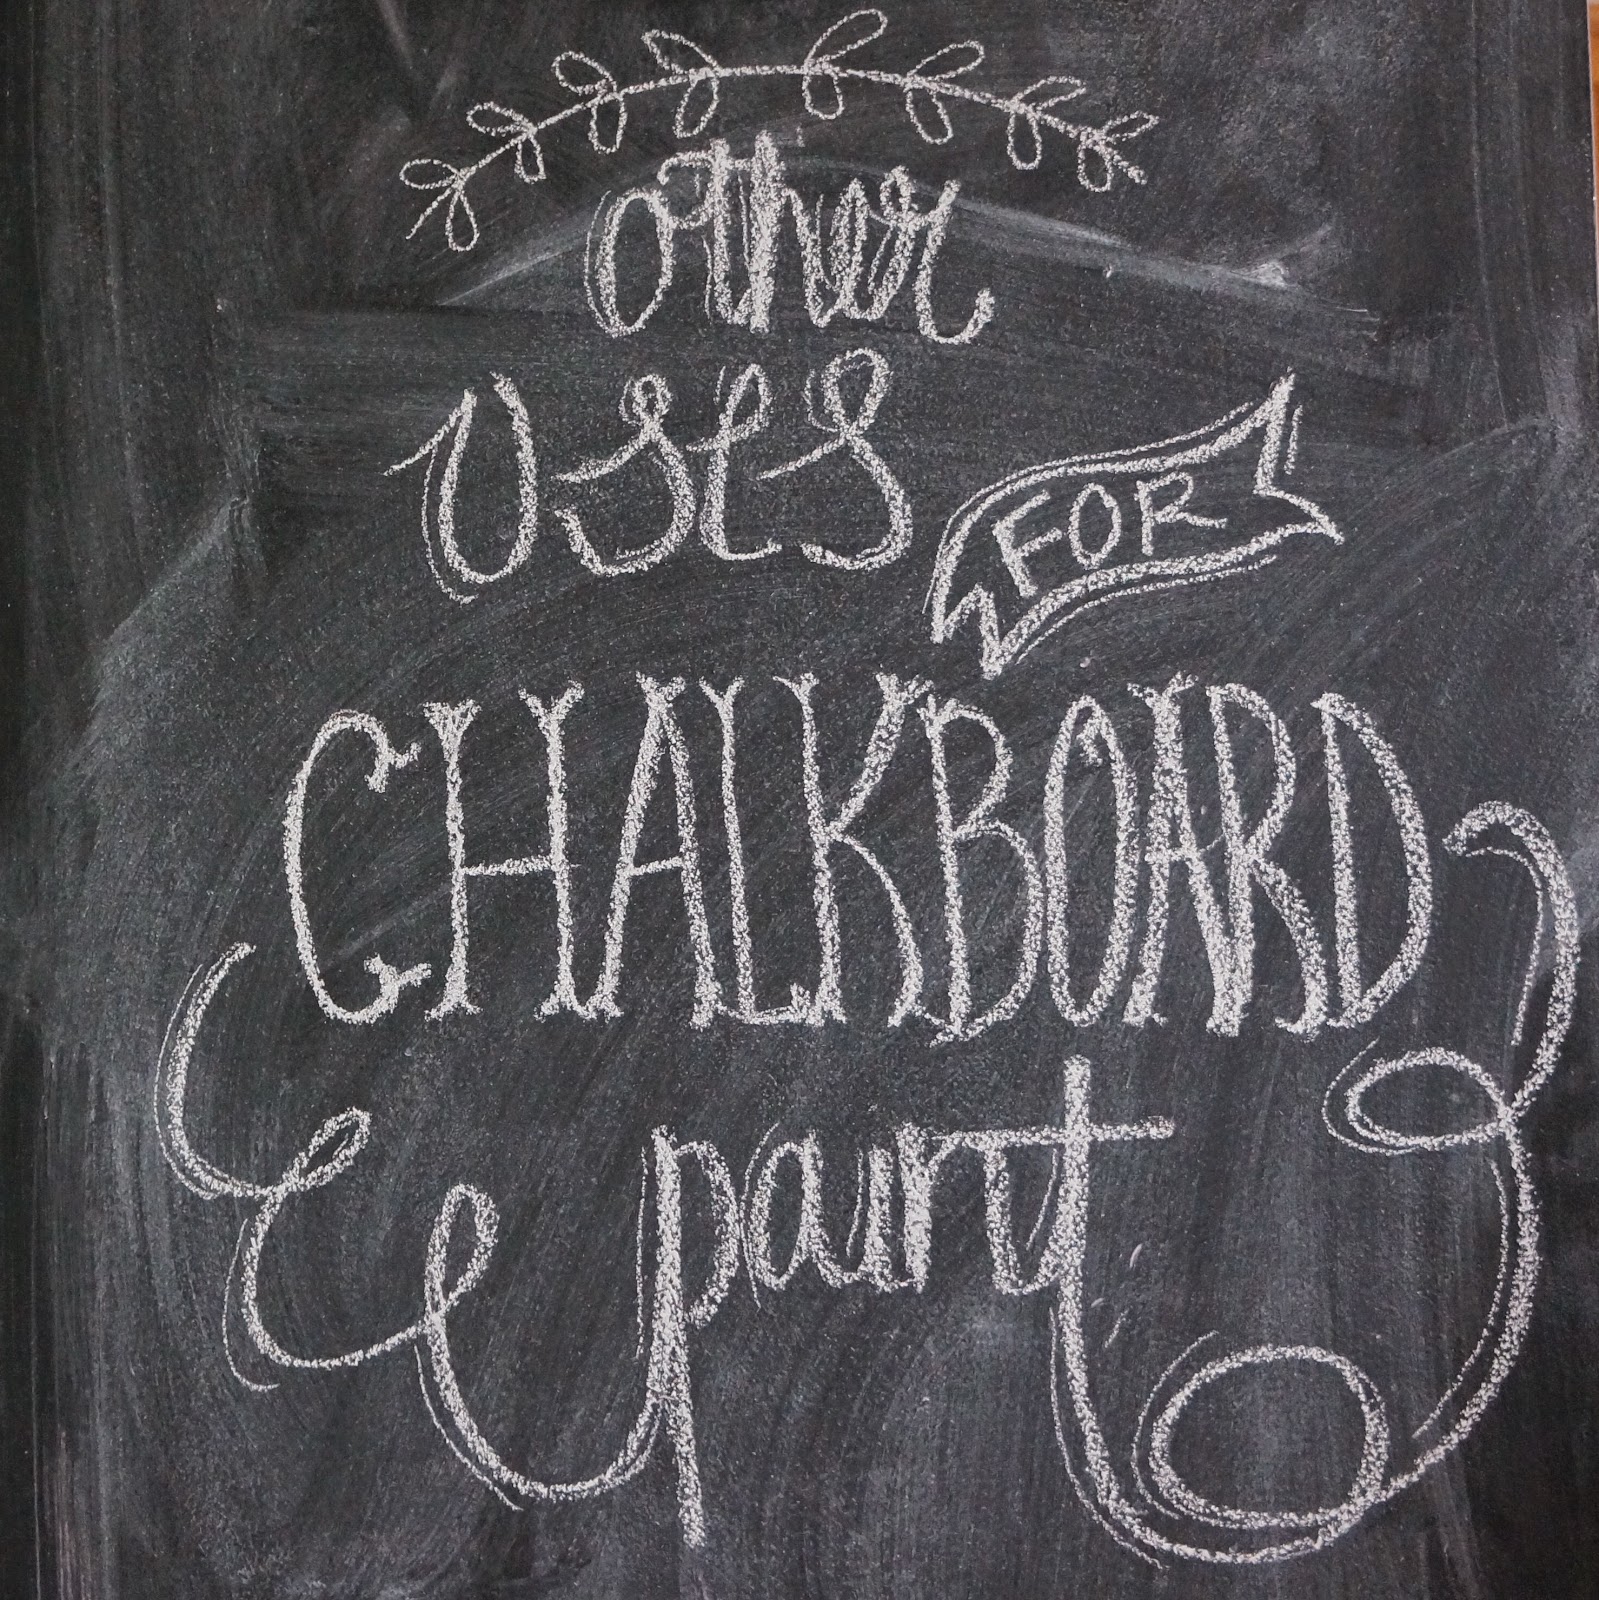 other
uses
FOR
CHALKBOARD
paint